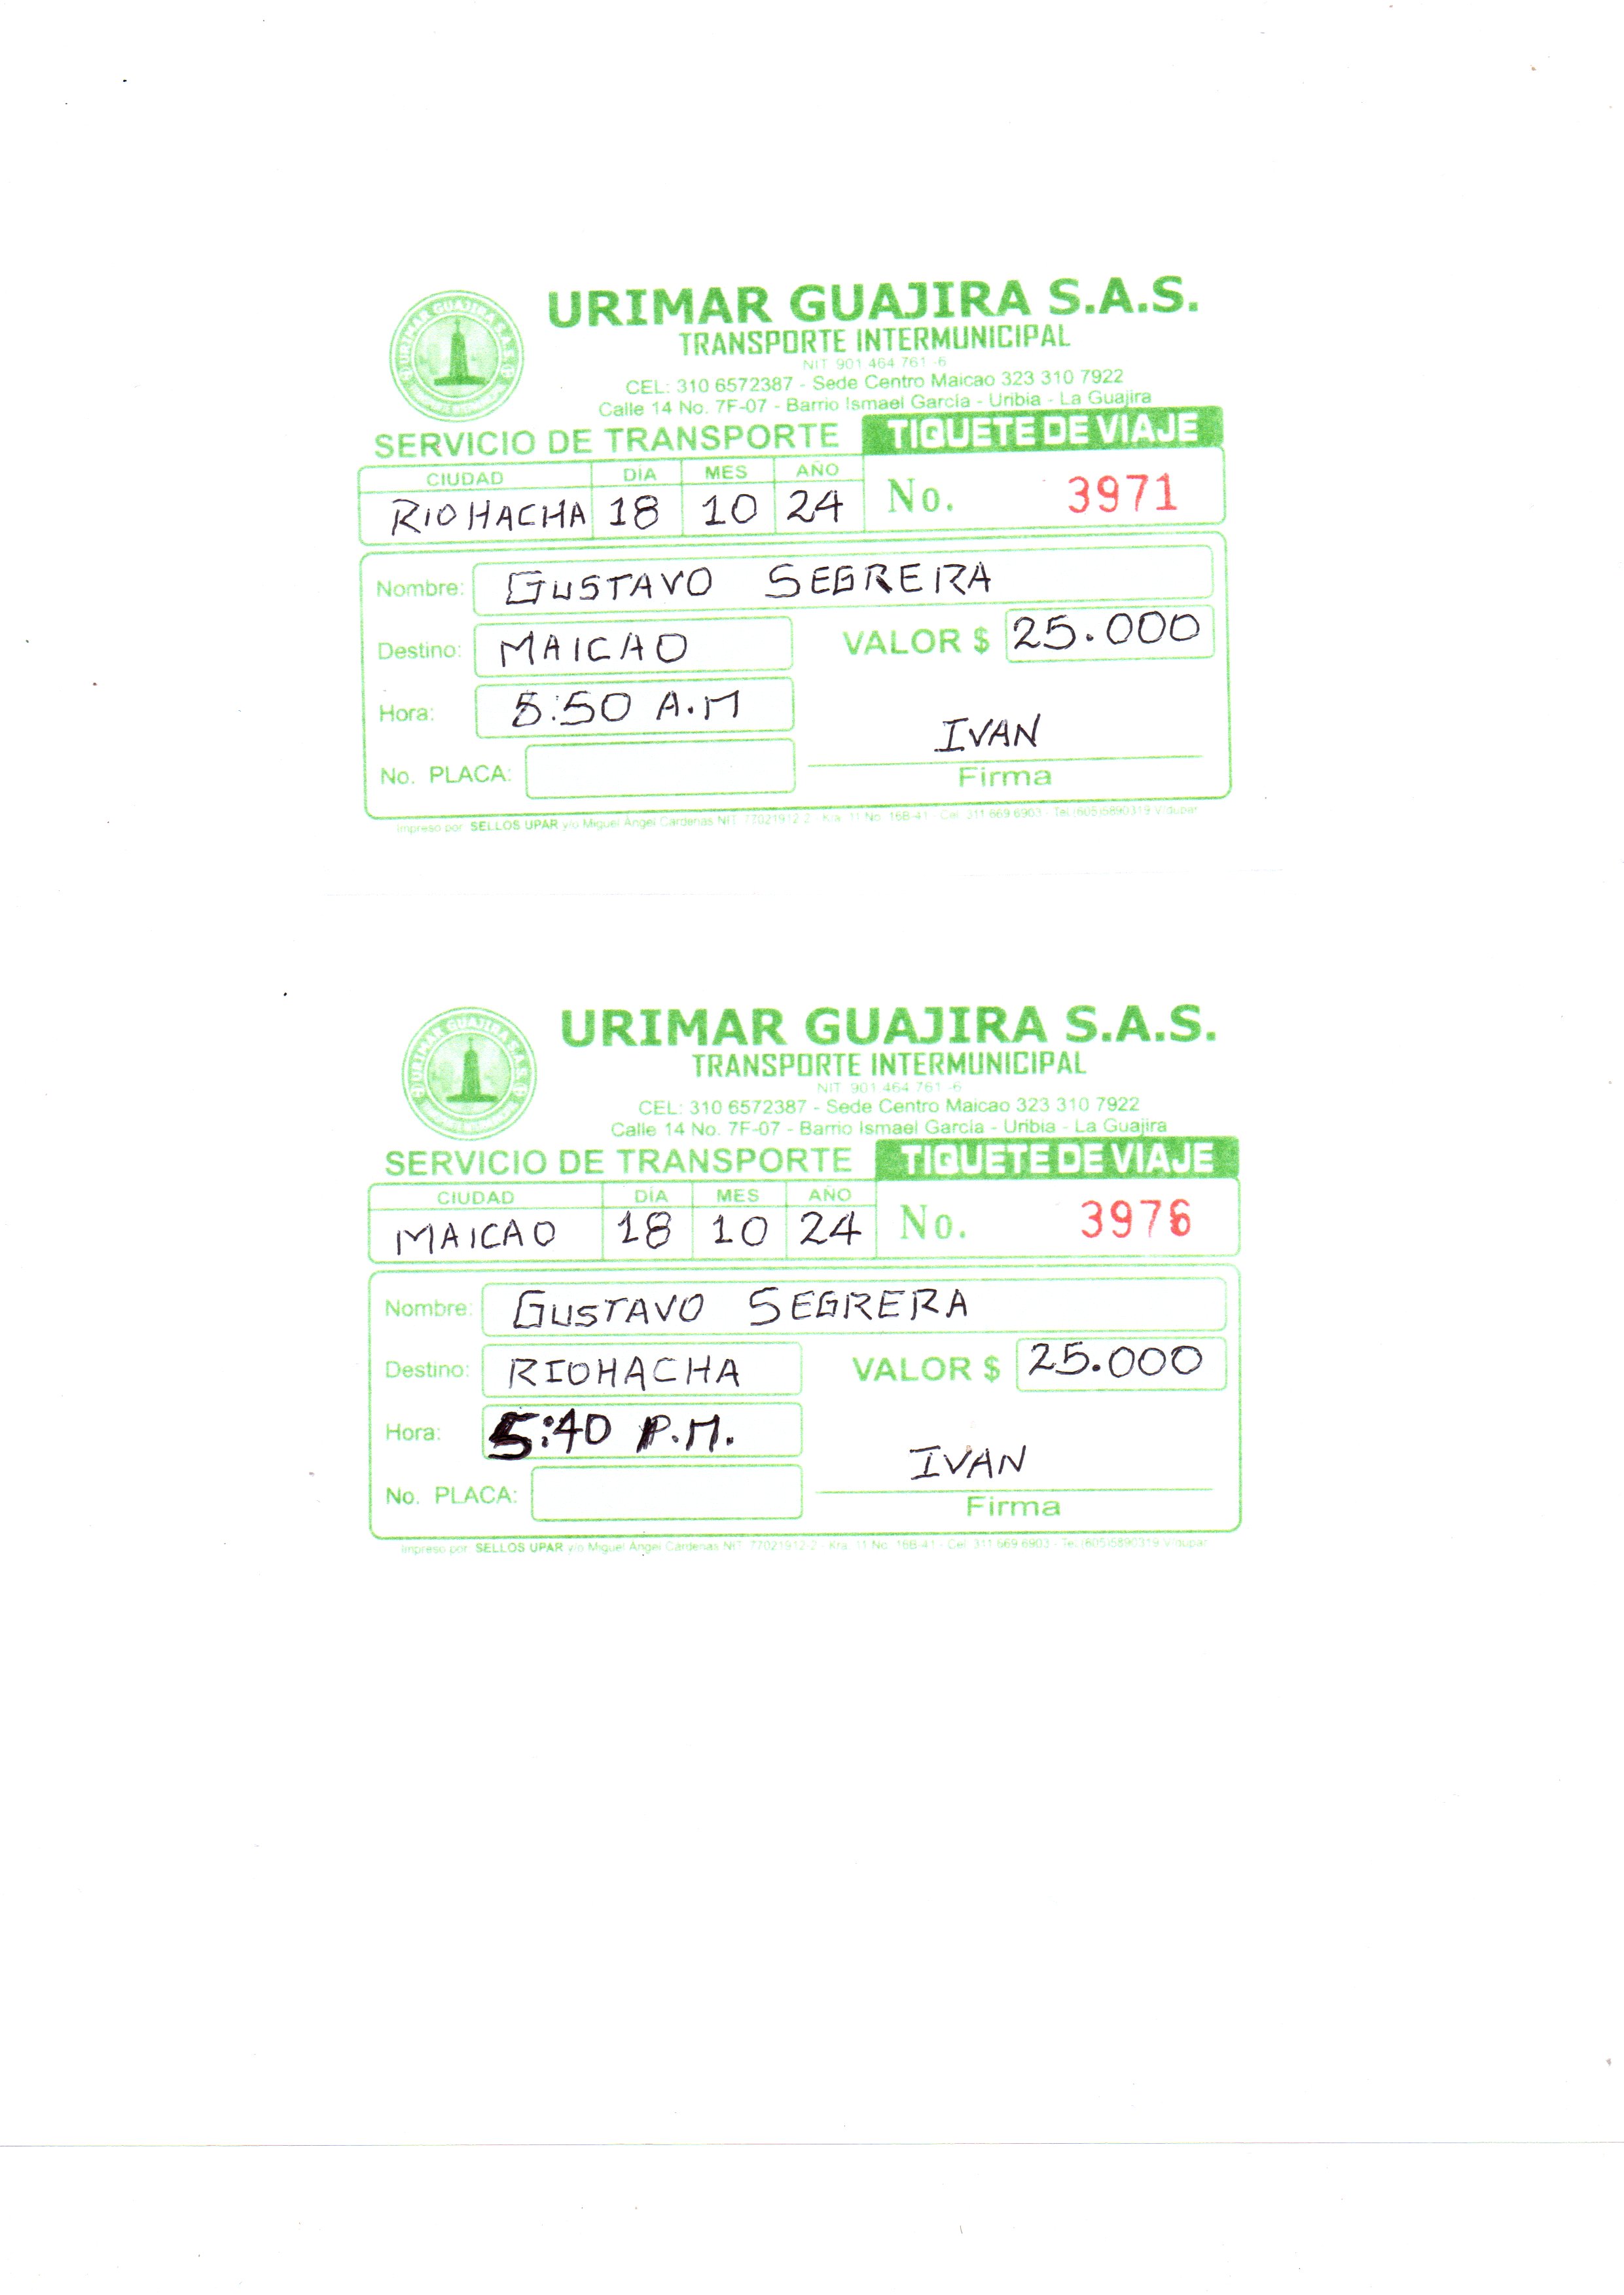 URIMAR GUAJIRA S.A.S.
URIMAR GUAJIRA S.A.S.
TRANSPORTE INTERMUNICIPAL
NIT 901 464 761 -6
CEL: 310 6572387 - Sede Centro Maicao 323 310 7922
Calle 14 No. 7F-07 - Barrio Ismael García - Uribia - La Guajira
SERVICIO DE TRANSPORTE TIQUETE DE VIAJE
CIUDAD DÍA MES AÑO
RIOHACHA 18 10 24 No. 3971
Nombre: GUSTAVO SEGRERA
Destino: MAICAO VALOR $ 25.000
Hora: 5:50 A.M
IVAN
No. PLACA: Firma
Impreso por: SELLOS UPAR y/o Miguel Angel Cardenas NIT. 77021912-2 - Kra. 11 No. 16B-41 - Cel. 311 669 6903 - Tel. (605)5890319 V/dupar
URIMAR GUAJIRA S.A.S.
URIMAR GUAJIRA S.A.S.
TRANSPORTE INTERMUNICIPAL
NIT 901 464 761 -6
CEL: 310 6572387 - Sede Centro Maicao 323 310 7922
Calle 14 No. 7F-07 - Barrio Ismael García - Uribia - La Guajira
SERVICIO DE TRANSPORTE TIQUETE DE VIAJE
CIUDAD DÍA MES AÑO
MAICAO 18 10 24 No. 3976
Nombre: GUSTAVO SEGRERA
Destino: RIOHACHA VALOR $ 25.000
Hora: 5:40 P.M.
IVAN
No. PLACA: Firma
Impreso por: SELLOS UPAR y/o Miguel Angel Cardenas NIT. 77021912-2 - Kra. 11 No. 16B-41 - Cel. 311 669 6903 - Tel. (605)5890319 V/dupar